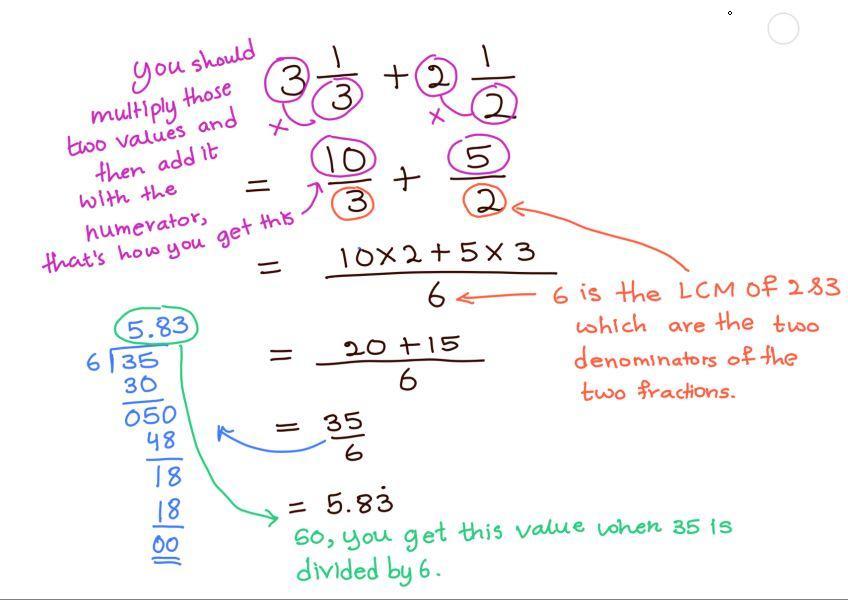 you should
multiply those
two values and
then add it
with the
numerator,
that's how you get this
3 1/3 + 2 1/2
×
×
= 10/3 + 5/2
= 10×2+5×3/6
6 is the LCM of 2&3
which are the two
denominators of the
two fractions.
= 20+15/6
= 35/6
= 5.83̇
5.83
6 35
30
050
48
18
18
00
so, you get this value when 35 is
divided by 6.